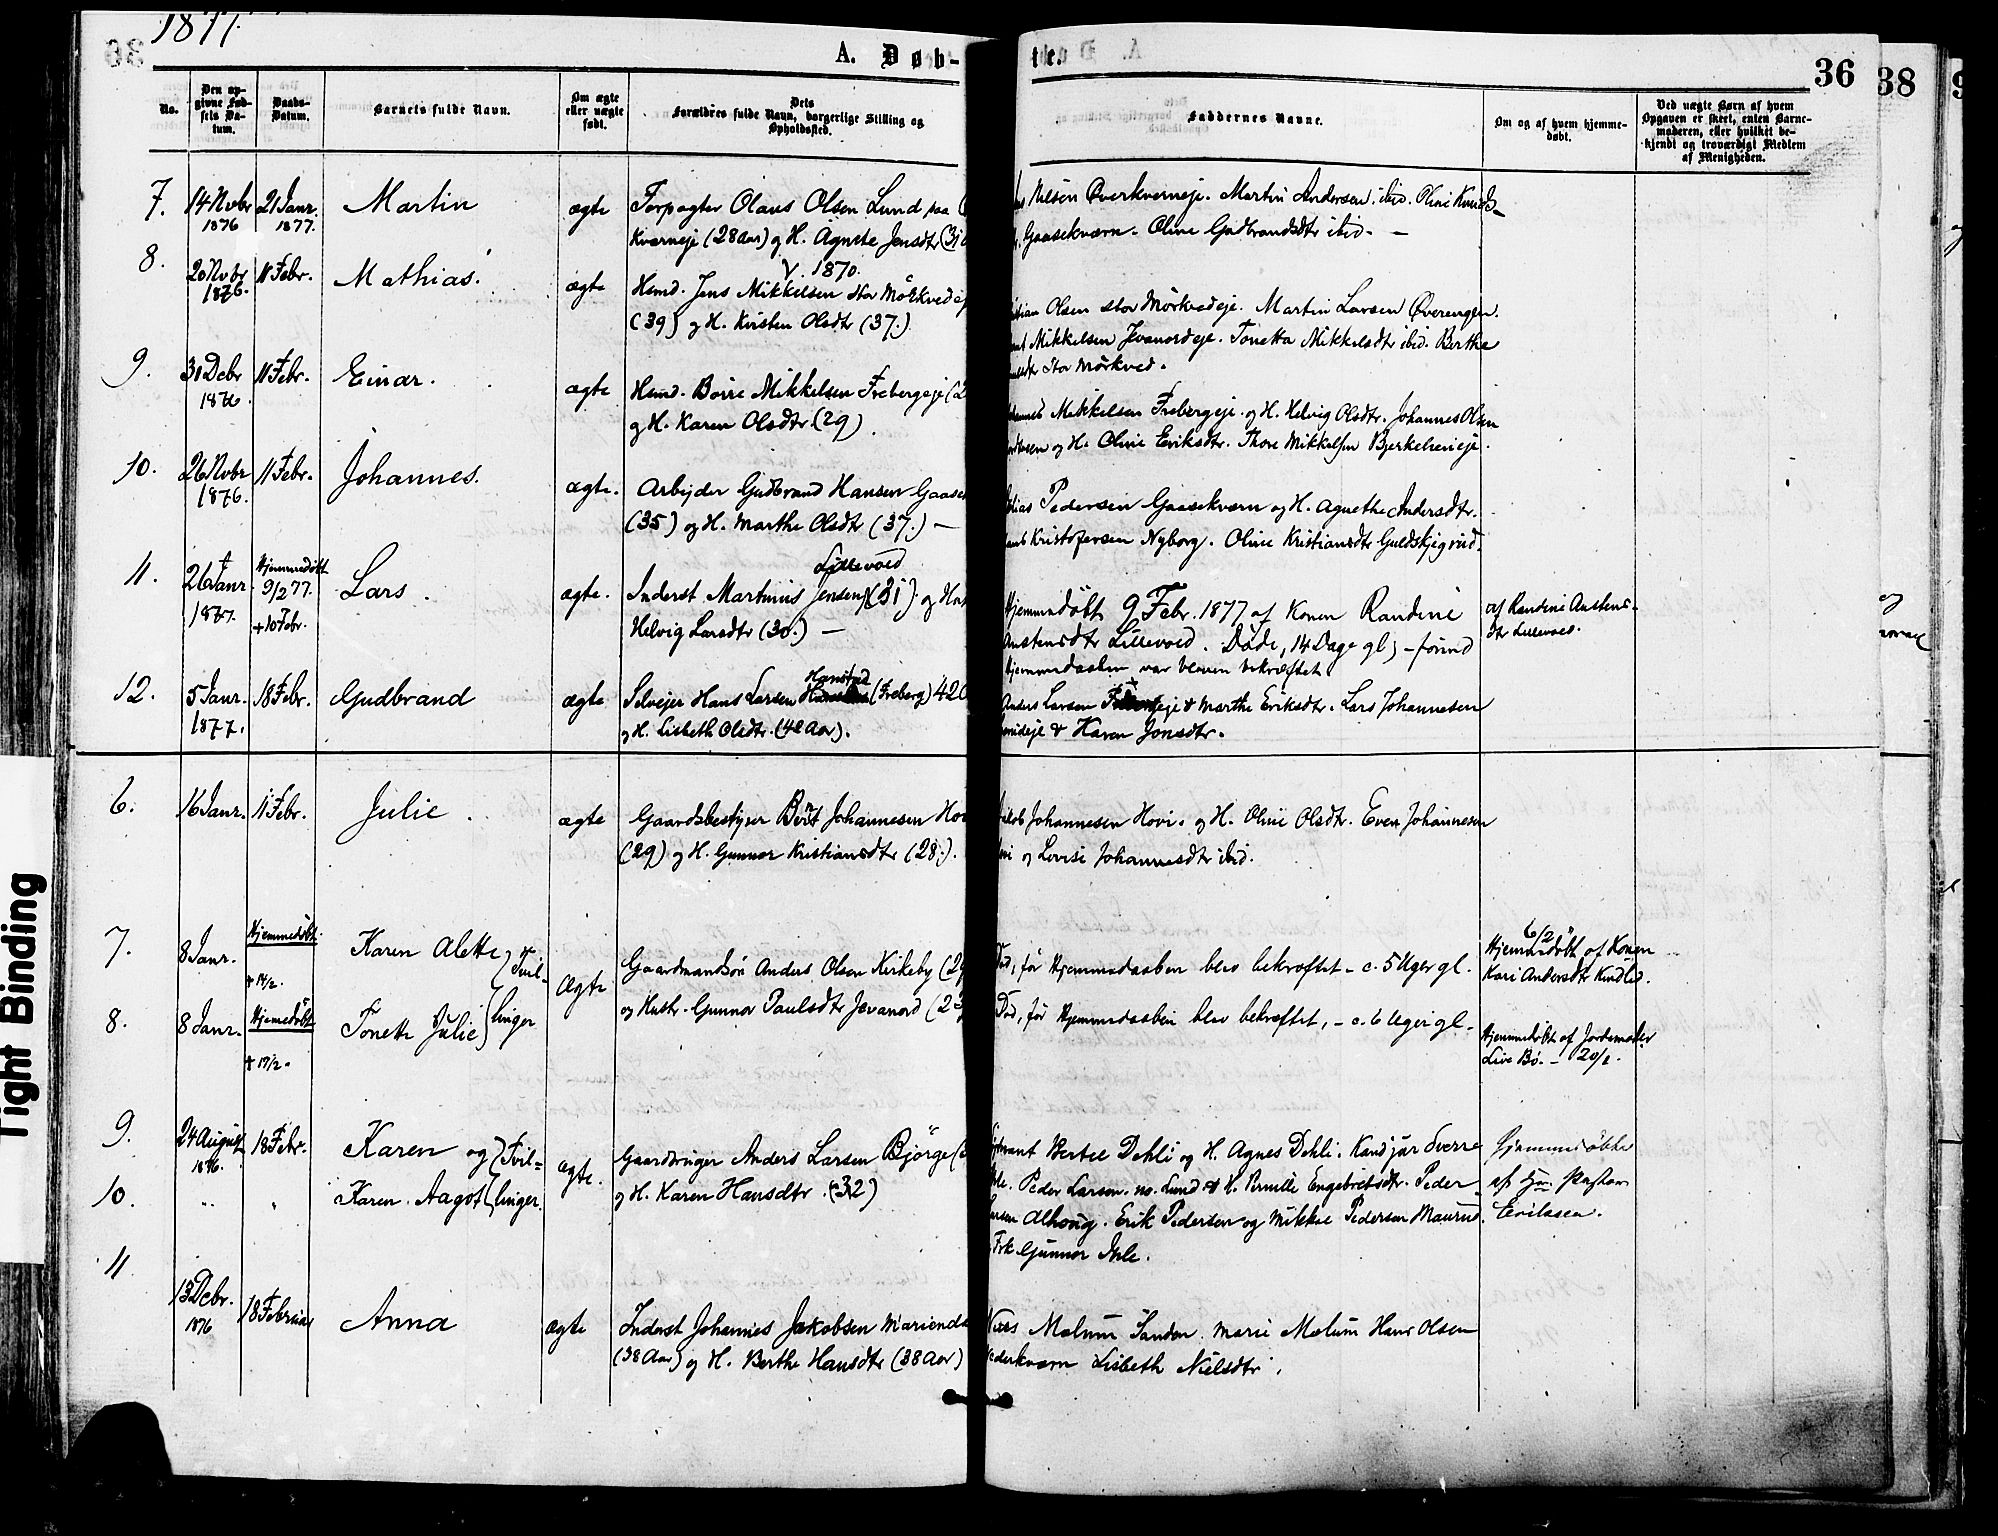 1877.
36
A. Døb-
te.
36
38
No.
Den op-
givne Fød-
sels Da-
tum.
Daabs-
Datum.
Barnets fulde Navn.
Om ægte
eller uægte
født.
Dets
Forældres fulde Navn, borgerlige Stilling og
Opholdssted.
Faddernes Navne.
Om og af hvem hjemme-
døbt.
Ved uægte Børn af hvem
Opgaven er skeet, enten Barne-
moderen, eller hvilket be-
kjendt og troværdigt Medlem
af Menigheden.
7. 14 Nvbr 1876 21 Janr. 1877. Martin ægte
Forpagter Olaus Olsen Lund paa
Kværneje (28 aar) og H. Agnete Jensdtr (31
Nilsen Øverkverneje. Martin Andersen ibid. Oline Knuds-
Gaasekværn. Oline Gudbrandsdtr ibid. -
8. 20 Nvbr 1876. 11 Febr. Mathias. ægte
V. 1870.
Hsmd. Jens Mikkelsen stor Mörkvedej
(39) og H. Kirsten Olsdtr (37.)
Olsen stor Mörkvedeje. Martin Larsen Øverengen.
Mikkelsen Jevanordeje. Tonetta Mikkelsdtr ibid. Berthe
stor Mörkved.
9. 31 Debr 1876. 11 Febr. Einar. ægte
Hsmd. Borre Mikkelsen Frebergeje (2
og H. Karen Olsdtr. (29)
Mikkelsen Frebergeje og H. Helvig Olsdtr. Johannes Olsen
og H. Oline Eriksdtr. Thore Mikkelsen Bjerkelieneje.
10. 26 Nvbr 1876. 11 Febr. Johannes. ægte.
Arbejder Gudbrand Hansen Gaase
(35) og H. Marthe Olsdtr (37.) —
Pedersen Gaasekværn og H. Agnethe Andersdtr.
Kristofersen Nyborg. Oline Kristiansdtr Guldskjegrud.
11. 26 Janr 1877. Hjemmedöbt 9/2 77. + 10 Febr. Lars. ægte.
Lillevold
Inderst Martinius Jensen (31) og Hst
Helvig Larsdtr (30.) —
Hjemmedöbt 9 Febr. 1877 af Konen Randine
Austensdtr Lillevold. Döde, 14 Dage gl, - förend
Hjemmedaaben var bleven bekræftet.
af Randine Austens-
dtr Lillevold.
12. 5 Janr. 1877. 18 Febr. Gudbrand ægte
Hanstad
Selvejer Hans Larsen (Freberg) 42
og H. Lisbeth Olsdtr. (42 Aar).
Anders Larsen & Marthe Eriksdtr. Lars Johannesen
& Karen Jonsdtr.
6. 16 Janr. 11 Febr. Julie. ægte
Gaardsbestyrer Bernt Johannesen Hov
(29) og H. Gunnor Kristiansdtr (28.).
Johannesen Hovi. og H. Oline Olsdtr. Even Johannesen
og Lovise Johannesdtr ibid.
7. 8 Janr. Hjemmedöbt. + 14/2. Karen Alette
8. 8 Janr. Hjemmedöbt + 17/2. Tonette Julie
Tvil-
linger
Ægte
Gaardmandsön Anders Olsen Kirkeby (29
og Hustr. Gunnor Paulsdtr Jevanord (23
Död, för Hjemmedaaben blev bekræftet - c. 5 Uger gl.
Död, för Hjemmedaaben blev bekræftet, - c. 6 Uger gl.
6/2
Hjemmedöbt af Konen
Kari Andersdtr Kindlid.
Hjemmedöbt af Jordemoder
Live Bö. - 20/1.
9. 24 August 1876. 18 Febr. Karen og
10. " " Karen Aagot
Tvil-
linger.
ægte.
Gaardbruger Anders Larsen Björge (
og H. Karen Hansdtr. (32)
Bertel Dehli og H. Agnes Dehli. Kand jur Sverre
Peder Larsen no. Lund & H. Pernille Engebretsdtr. Peder
Alhoug. Erik Pedersen og Mikkel Pedersen Maurud.
Frk Gunnor Ihle.
Hjemmedöbte
af Hr. Pastor
Erikssen.
11
13 Debr. 1876 18 Februar Anna ægte
Inderst Johannes Jakobsen Mariend
(38 Aar) og H. Berthe Hansdtr (38 Aar)
Molum Sanden. Marie Molum Hans Olsen
Lisbeth Nielsdtr.
Tight Binding